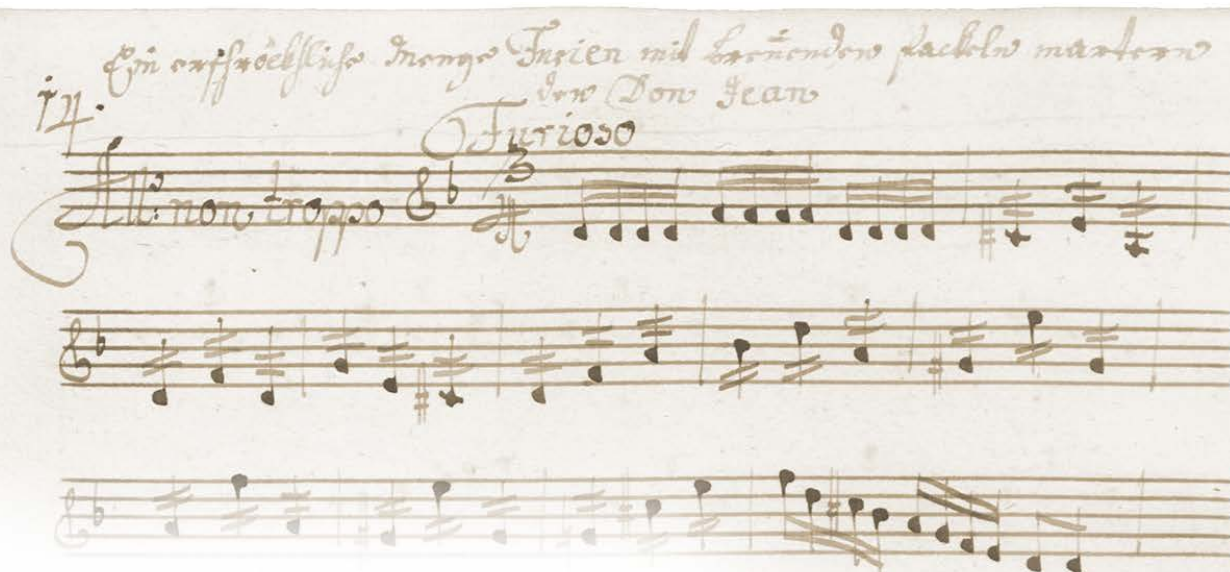 Ein erschröckliche Menge Furien mit breñenden fackeln martern
den Don Jean
14.
Furioso
All.º non troppo 3/4